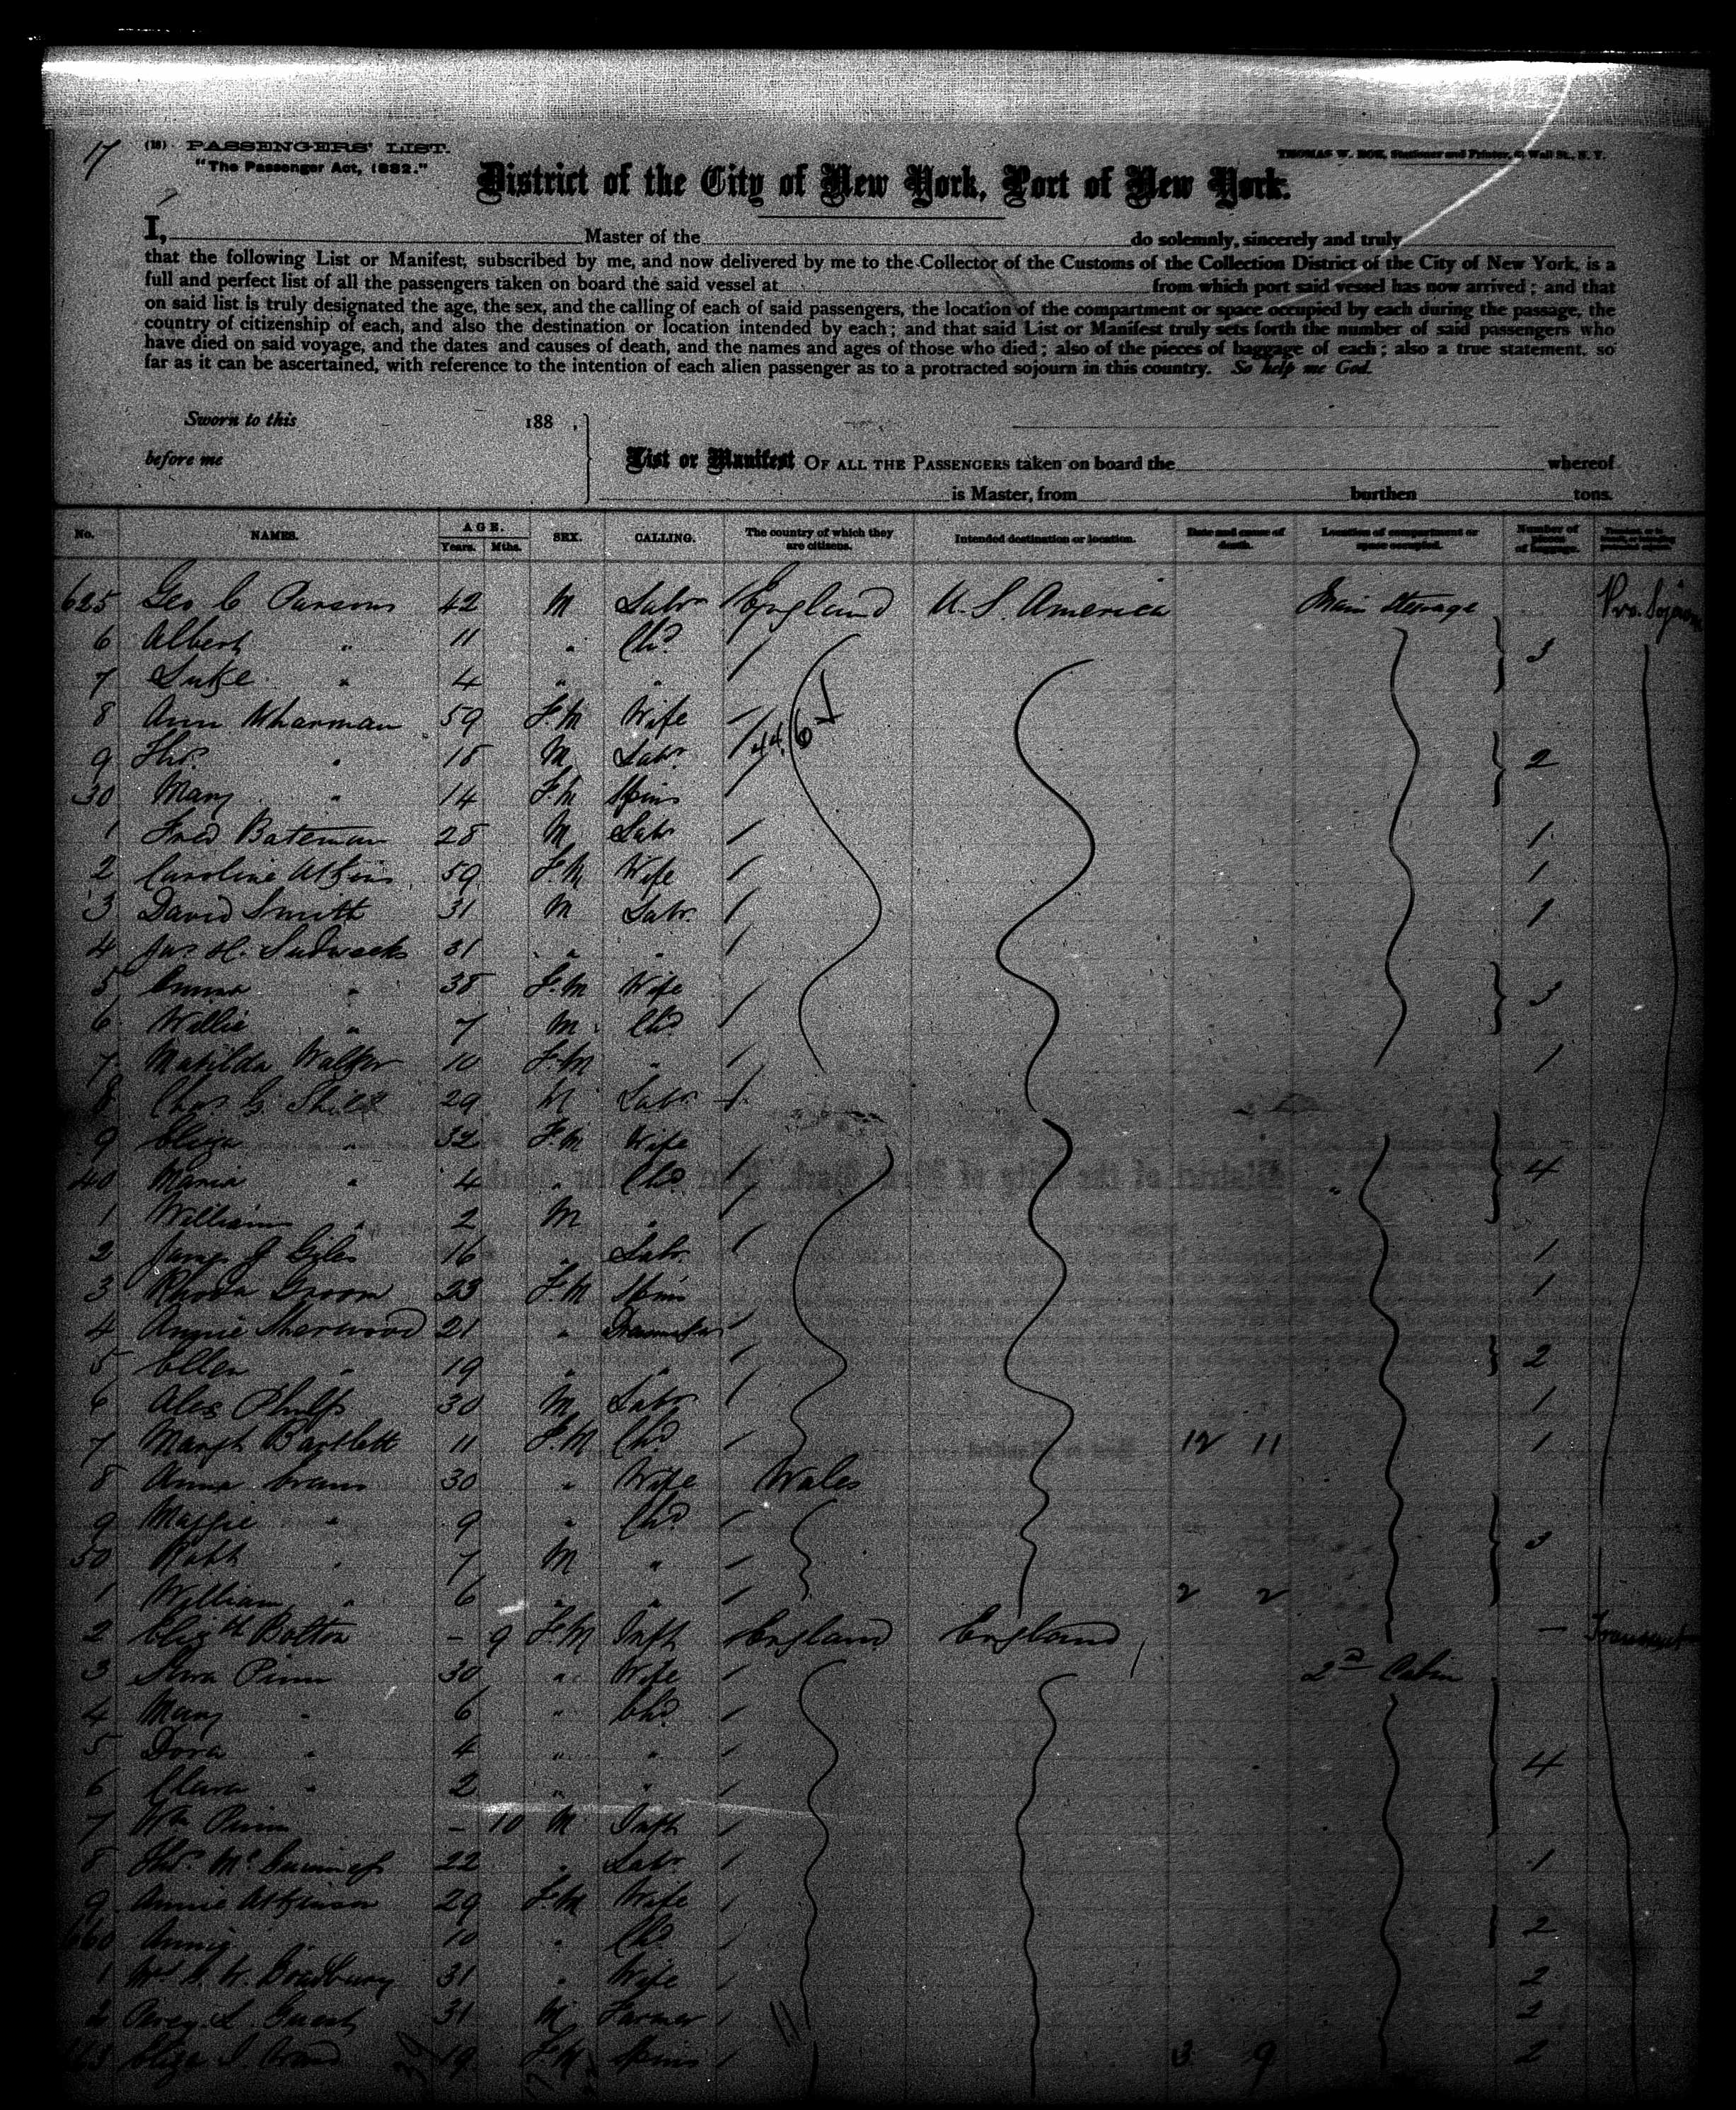 17
(18) PASSENGERS' LIST.
"The Passenger Act, 1882."
THOMAS W. ROE, Stationer and Printer, Wall St., N. Y.
District of the City of New York, Port of New York.
I, Master of the do solemnly, sincerely and truly
that the following List or Manifest, subscribed by me, and now delivered by me to the Collector of the Customs of the Collection District of the City of New York, is a
full and perfect list of all the passengers taken on board the said vessel at from which port said vessel has now arrived; and that
on said list is truly designated the age, the sex, and the calling of each of said passengers, the location of the compartment or space occupied by each during the passage, the
country of citizenship of each, and also the destination or location intended by each; and that said List or Manifest truly sets forth the number of said passengers who
have died on said voyage, and the dates and causes of death, and the names and ages of those who died; also of the pieces of baggage of each; also a true statement, so
far as it can be ascertained, with reference to the intention of each alien passenger as to a protracted sojourn in this country. So help me God.
Sworn to this 188 ,
before me
List or Manifest OF ALL THE PASSENGERS taken on board the whereof
is Master, from burthen tons.
No. NAMES. AGE. Years. Mths. SEX. CALLING. The country of which they are citizens. Intended destination or location. Date and cause of death. Location of compartment or space occupied. Number of pieces of baggage.
625 Geo C Parsons 42 M Labr England U. S. America Main Steerage Pro. Sojourn
6 Albert " 11 " Chd 3
7 Luke " 4 " "
8 Ann Wharman 59 F.M Wife
9 Thos. " 18 M Labr. 2
30 Mary " 14 F.M Spins
1 Fred Bateman 28 M Labr 1
2 Caroline Atkins 59 F.M Wife 1
3 David Smith 31 M Labr. 1
4 Jas. H. Sudweeks 31 " "
5 Emma " 38 F.M Wife 3
6 Willie " 7 M Chd
7 Matilda Walker 10 F.M " 1
8 Chas G. 29 M Labr
9 Eliza " 32 F.M Wife
40 Maria " 4 " Chd 4
1 William " 2 M "
2 James J Giles 16 " Labr. 1
3 Rhoda Groom 23 F.M Spins 1
4 Annie Sherwood 21 "
5 Ellen " 19 " " 2
6 Alex Phelps 30 M Labr 1
7 Margt Bartlett 11 F.M Chd 12 11 1
8 Anna Evans 30 " Wife Wales
9 Maggie " 9 " Chd
50 Robt " 7 M " 3
1 William " 6 " " 2 2
2 Elizth Bolton - 9 F.M Inft England England — Transient
3 Pinn 30 " Wife 2nd Cabin
4 Mary " 6 " Chd
5 Dora " 4 " " 4
6 Clara " 2 " "
7 Wm Pinn - 10 M Inft
8 Thos. McGuinness 22 " Labr 1
9 Annie Atkinson 29 F.M Wife
660 Annie " 10 " Chd 2
1 W. Bradbury 31 " Wife 2
2 Percy L. Guest 31 M Farmer 2
663 Eliza J. 19 F.M Spins 3 9 2